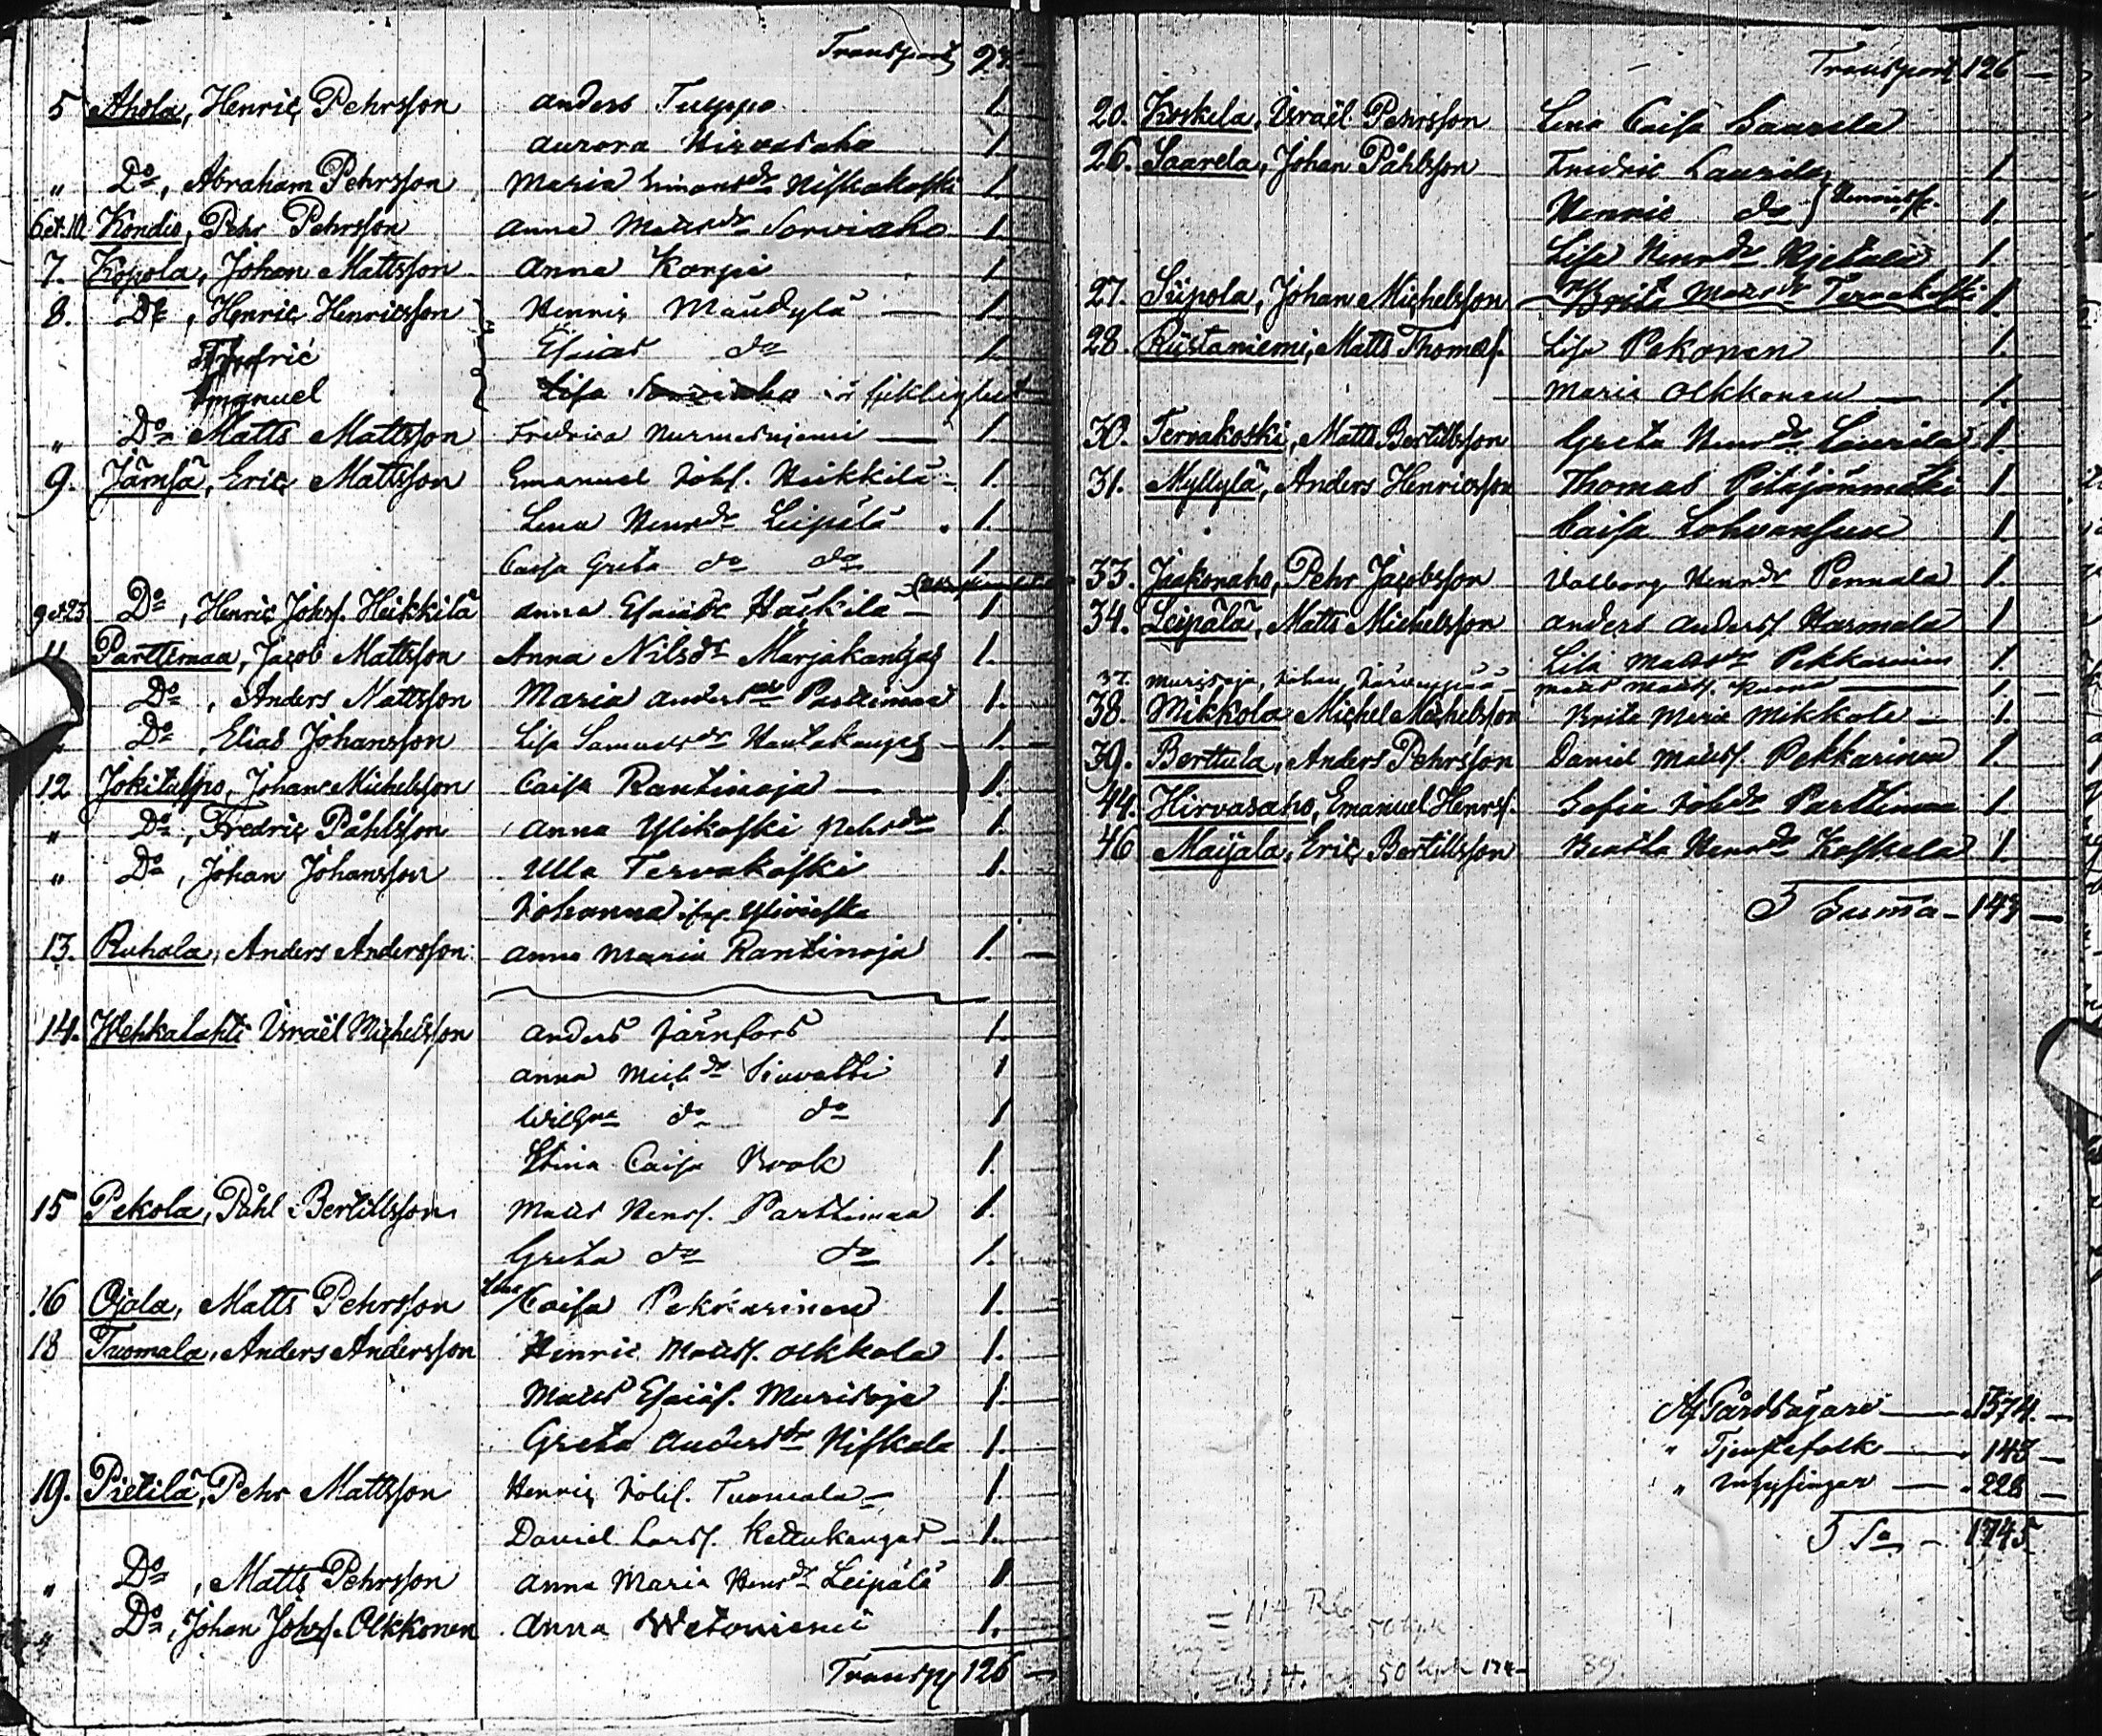 Transport
5 Ahola, Henric Pehrsson Anders Tuppo 1.
Aurora Hirvasaho 1
" Do, Abraham Pehrsson Maria Simonsdr Niskakoski 1.
6 et. 10 Kondio, Pehr Pehrsson Anna Mattsdr Sorviaho 1.
7. Kopola, Johan Mattsson Anna Korpi 1
8. Do, Henric Henricsson Henric Mändylä 1.
Fredric Esaias do 1.
Emanuel Lisa Sorviaho
" Do Matts Mattsson Fredrica Nurmesniemi 1
9. Jämsä, Eric Mattsson Emanuel Johs. Heikkilä 1.
Lena Henrdr Leipälä 1.
Caisa Greta do do 1
9 et 23 Do, Henric Johs. Heikkilä Anna Esaiadr 1
11 Parttimaa, Jacob Mattsson Anna Nilsdr Marjakangas 1.
Do, Anders Mattsson Maria Andersdr Parttimaa 1.
" Do, Elias Johansson Lisa Samuelsdr Hautakangas 1.
12 Jokitulppo, Johan Michelsson Caisa Rantinoja 1.
" Do, Fredric Påhlsson Anna Ylikoski Pehrsdr 1.
" Do, Johan Johansson Ulla Tervakoski 1.
Johanna Ylivieska
13. Ruhala, Anders Andersson Anna Maria Rantinoja 1.
14. Wehkalahti Israël Michelsson Anders Järnfors 1.
Anna Michdr 1
do do 1
Stina Caisa Book 1.
15 Pekola, Påhl Bertillsson Matts Henrs. Parttimaa 1.
Greta do do 1.
16 Ojala, Matts Pehrsson Lena Caisa Pekkarinen 1.
18 Tuomala, Anders Andersson Henric Matts. Olkkola 1.
Matts Esaias. Murisoja 1
Greta Andersdr Niskala 1.
19. Pietilä, Pehr Mattsson Henric Johs. Tuomala 1.
David Larss. Kettukangas 1.
" Do, Matts Pehrsson Anna Maria Henrdr Leipälä 1
" Do, Johan Johs. Olkkonen Anna Wetoniemi 1.
Transp 126
Transport 126
20. Koskela, Israël Pehrsson Lena Caisa Saarela
26. Saarela, Johan Påhlsson Fredric Laurila 1
Henric do Henricss. 1.
Lisa Henrdr 1.
27. Siipola, Johan Michelsson Brita Mattsdr Tervakoski 1.
28. Riistaniemi, Matts Thomas. Lisa Pekonen 1.
Maria Olkkonen 1.
30. Tervakoski, Matts Bertillsson Greta Henrdr Laurila 1.
31. Myllylä, Anders Henricsson Thomas Pitäjänmäki 1.
Caisa 1
33. Jaakonaho, Pehr Jacobsson Valborg Henrdr Pennala 1.
34. Leipälä, Matts Michelsson Anders Anders. Harmala 1
Lisa Mattsdr Pekkarinen 1
37. Murisoja, Johan Järvenpää Matts Matts. 1.
38. Mikkola Michel Michelsson Brita Maria Mikkola 1.
39. Berttula, Anders Pehrsson Daniel Matts. Pekkarinen 1.
44. Hirvasaho, Emanuel Henrs. Sofia Johdr Parttimaa 1.
46 Maijala, Eric Bertillsson Beata Henrdr Koskela 1.
Summa 143
Af Gårdsägare 1374
" Tjenstefolk 143
" Inhysingar 228
Sa 1745